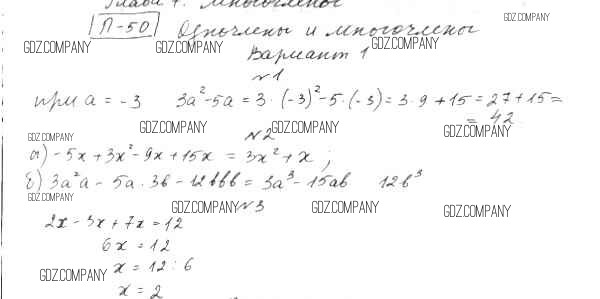 Глава 7. Многочлены
П-50 Одночлены и многочлены
Вариант 1
№1
при a = -3 3a²-5a = 3·(-3)²-5·(-3) = 3·9+15 = 27+15 =
= 42
№2
а) -5x+3x²-9x+15x = 3x²+x;
б) 3a²a - 5a·3b - 12bbb = 3a³-15ab 12b³
№3
2x-3x+7x=12
6x = 12
x = 12:6
x = 2
GDZ.COMPANY
GDZ.COMPANY
GDZ.COMPANY
GDZ.COMPANY
GDZ.COMPANY
GDZ.COMPANY
GDZ.COMPANY
GDZ.COMPANY
GDZ.COMPANY
GDZ.COMPANY
GDZ.COMPANY
GDZ.COMPANY
GDZ.COMPANY